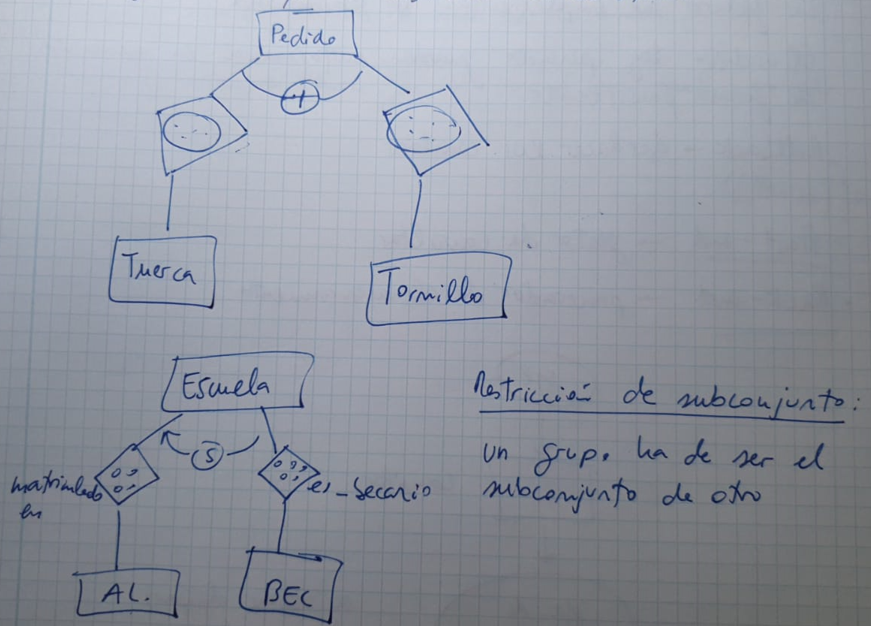 Pedido
Tuerca
Tornillo
Escuela
S
matriculado
en
es_becario
AL.
BEC
Restricción de subconjunto:
un grupo ha de ser el
subconjunto de otro